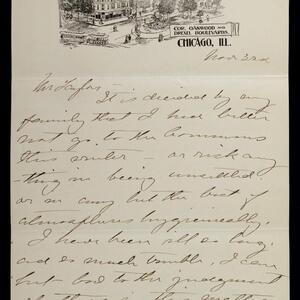 COR. OAKWOOD AND
DREXEL BOULEVARDS.
CHICAGO, ILL.
Nov 23rd
Mr Taylor
It is decided by my
family that I had better
not go to the Commons
this winter or risk any
thing in being unsettled
or in any but the best of
atmospheres hygienically.
I have been ill so long
and so much trouble, I can
but bow to the judgment